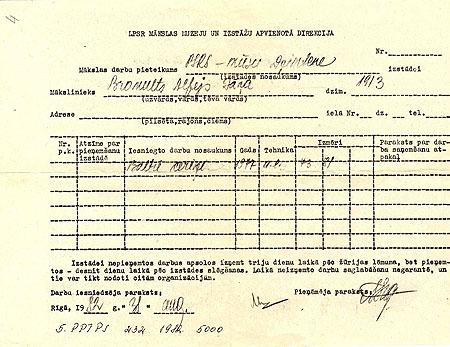 4
LPSR MĀKSLAS MUZEJU UN IZSTĀŽU APVIENOTĀ DIREKCIJA
Nr.
Mākslas darbu pieteikums PSRS – mūsu Dzimtene izstādei
(izstādes nosaukums)
Mākslinieks Alfejs dzim. 1913
(uzvārds, vārds, tēva vārds)
Adrese ielā Nr. dz. tel.
(pilsēta, rajons, ciems)
Nr. p.k. Atzīme par pieņemšanu izstādē Iesniegto darbu nosaukums Gads Tehnika Izmēri Paraksts par darba saņemšanu atpakaļ
Baltie 1977 73
Izstādei nepieņemtos darbus apsolos izņemt triju dienu laikā pēc žūrijas lēmuma, bet pieņem-
tos – desmit dienu laikā pēc izstādes slēgšanas. Laikā neizņemto darbu saglabāšanu negarantē, un
tie var tikt nodoti citām organizācijām.
Darbu iesniedzēja paraksts: Pieņēmēja paraksts:
Rīgā, 1982 g. " " aug.
5. PPTPS 1982 5000